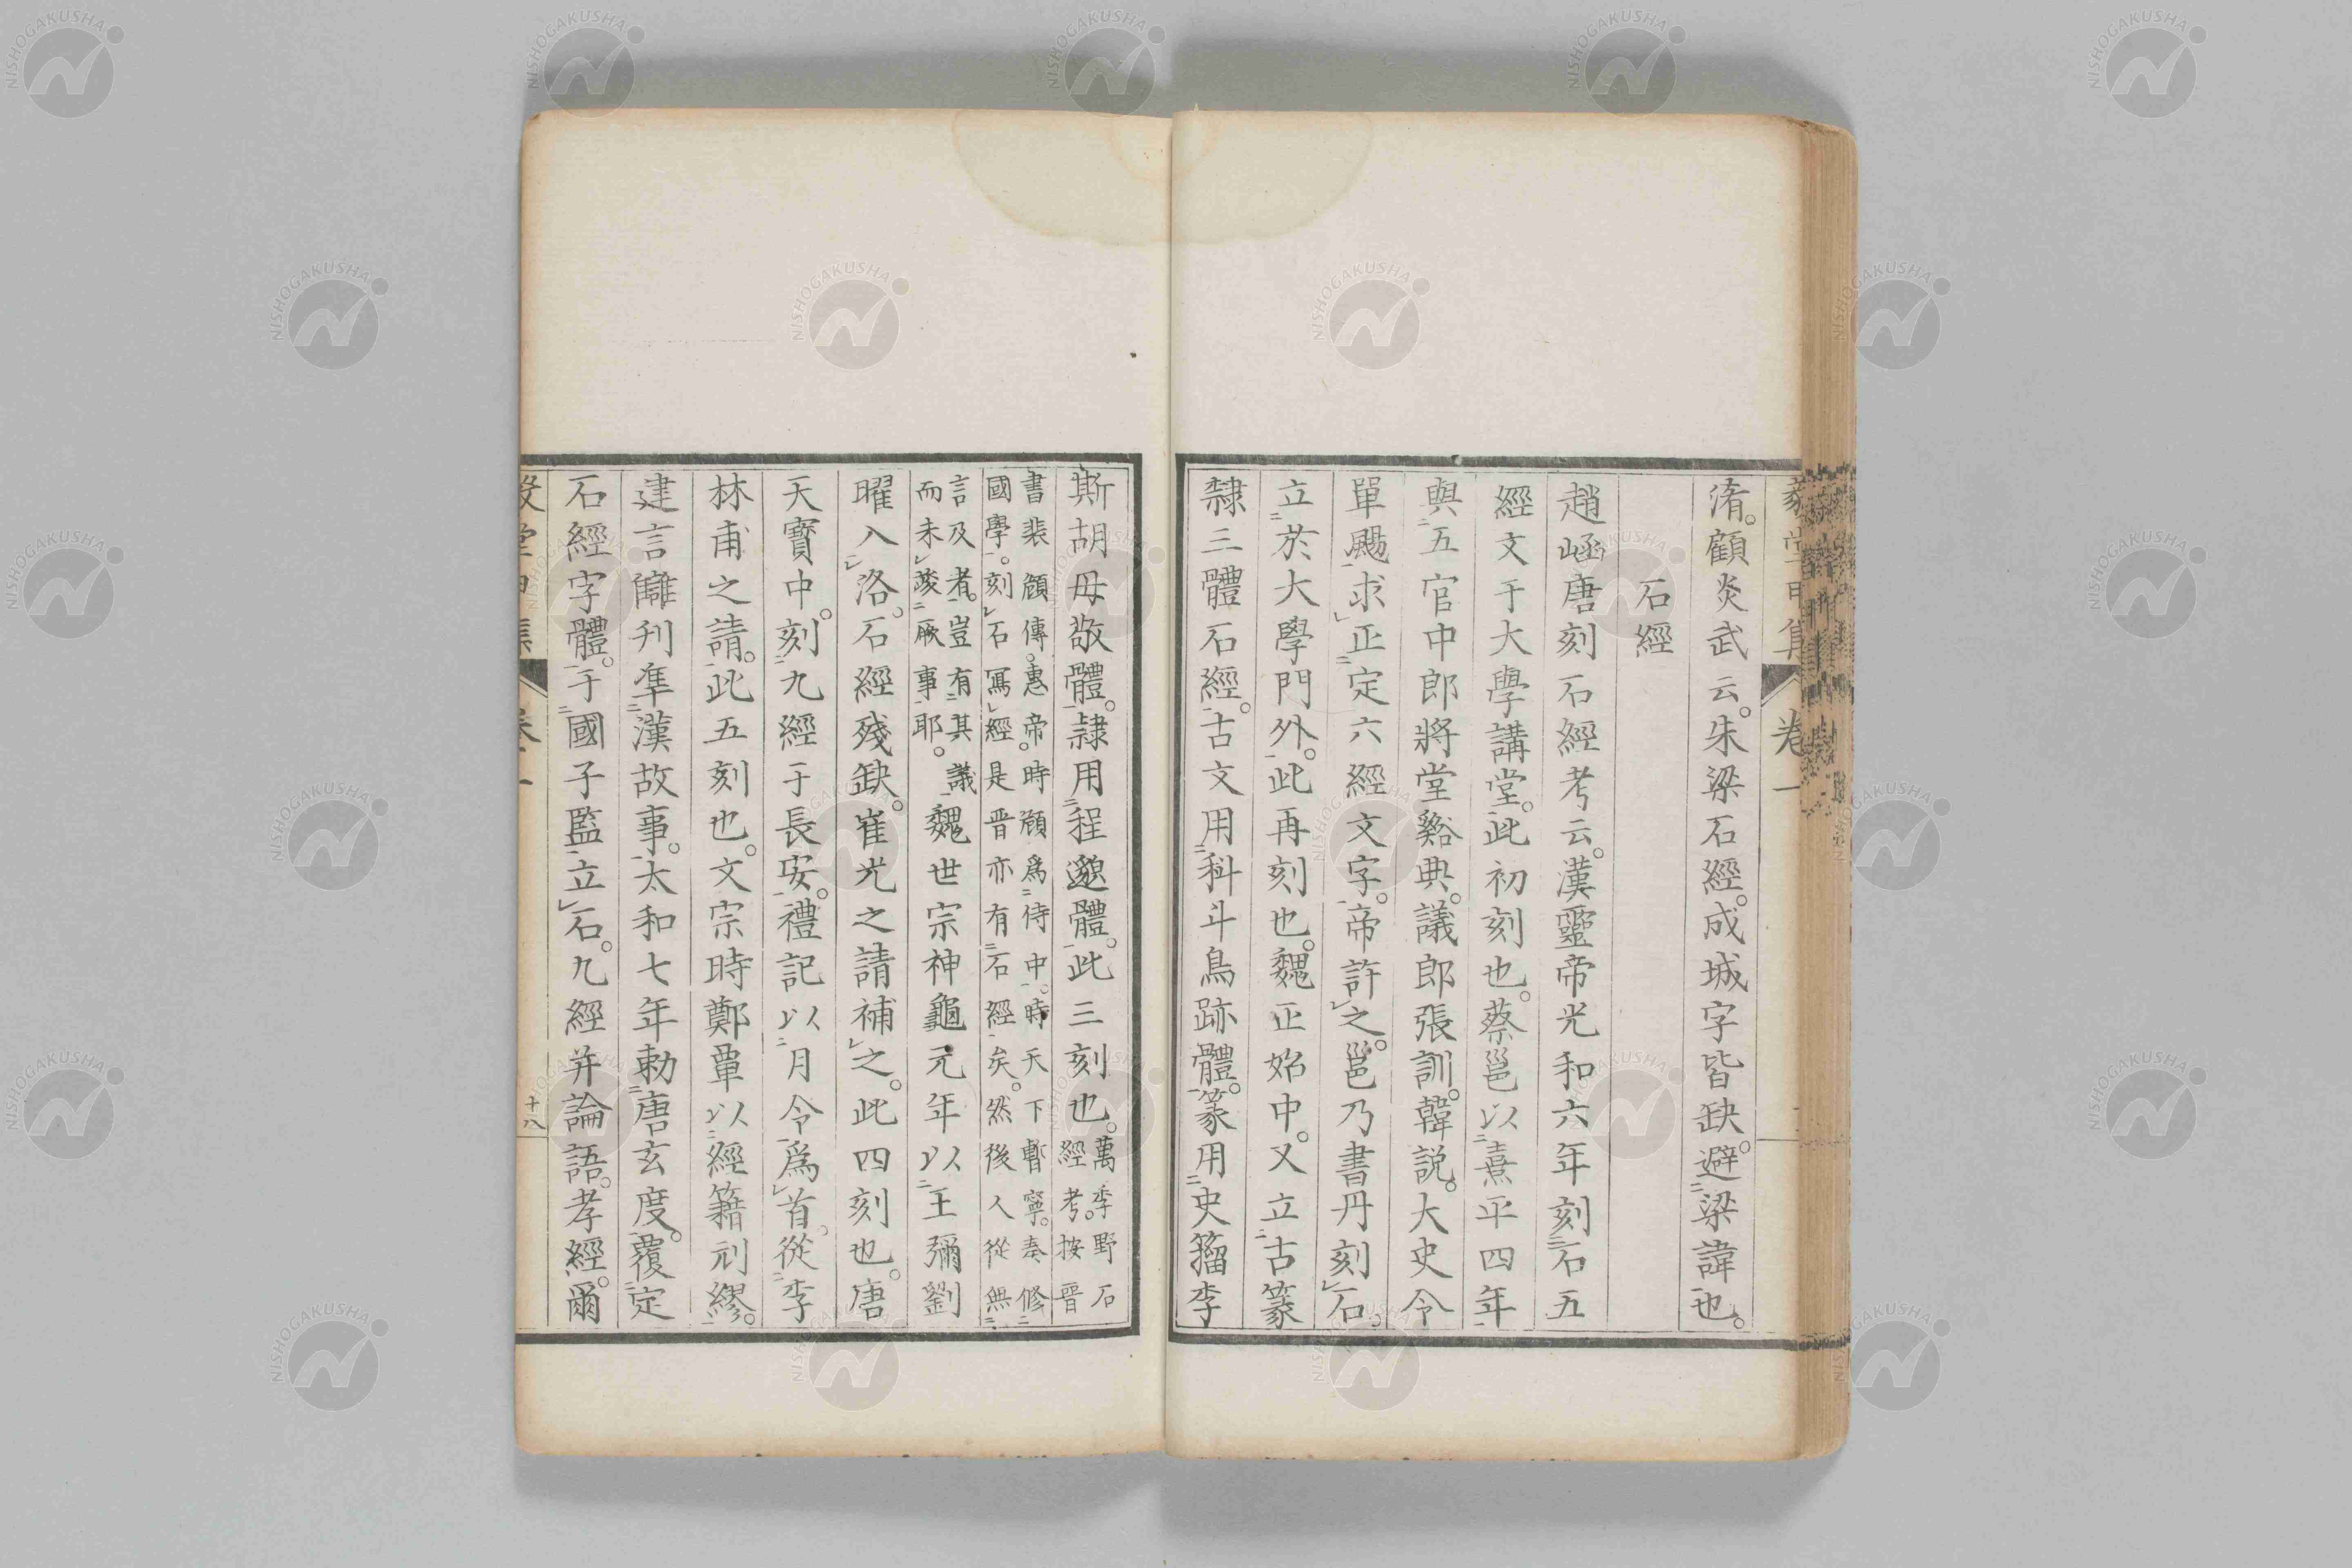 淆。顧炎武云。朱梁石經。成城字皆缺。避梁諱也。
石經
趙崡唐刻石經考云。漢靈帝光和六年刻石五
經文于大學講堂。此初刻也。蔡邕以熹平四年
與五官中郎將堂谿典。議郎張訓。韓説。大史令
單颺求正定六經文字。帝許之。邕乃書丹刻石。
立於大學門外。此再刻也。魏正始中。又立古篆
隸三體石經。古文用科斗鳥跡體。篆用史籀李
斯胡母敬體。隷用程邈體。此三刻也。萬季野石經考。按晋
書裴頠傳。惠帝時頠爲侍中。時天下暫寧。奏修
國學。刻石寫經。是晋亦有石經矣。然後人從無
言及者。豈有其議
而未竣厥事耶。
魏世宗神龜元年以王彌劉
曜入洛。石經殘缺。崔光之請補之。此四刻也。唐
天寶中。刻九經于長安。禮記以月令爲首。從李
林甫之請。此五刻也。文宗時鄭覃以經籍刓繆。
建言讎刊準漢故事。太和七年勅唐玄度。覆定
石經字體。于國子監立石。九經并論語。孝經。爾
卷一
十八
NISHOGAKUSHA